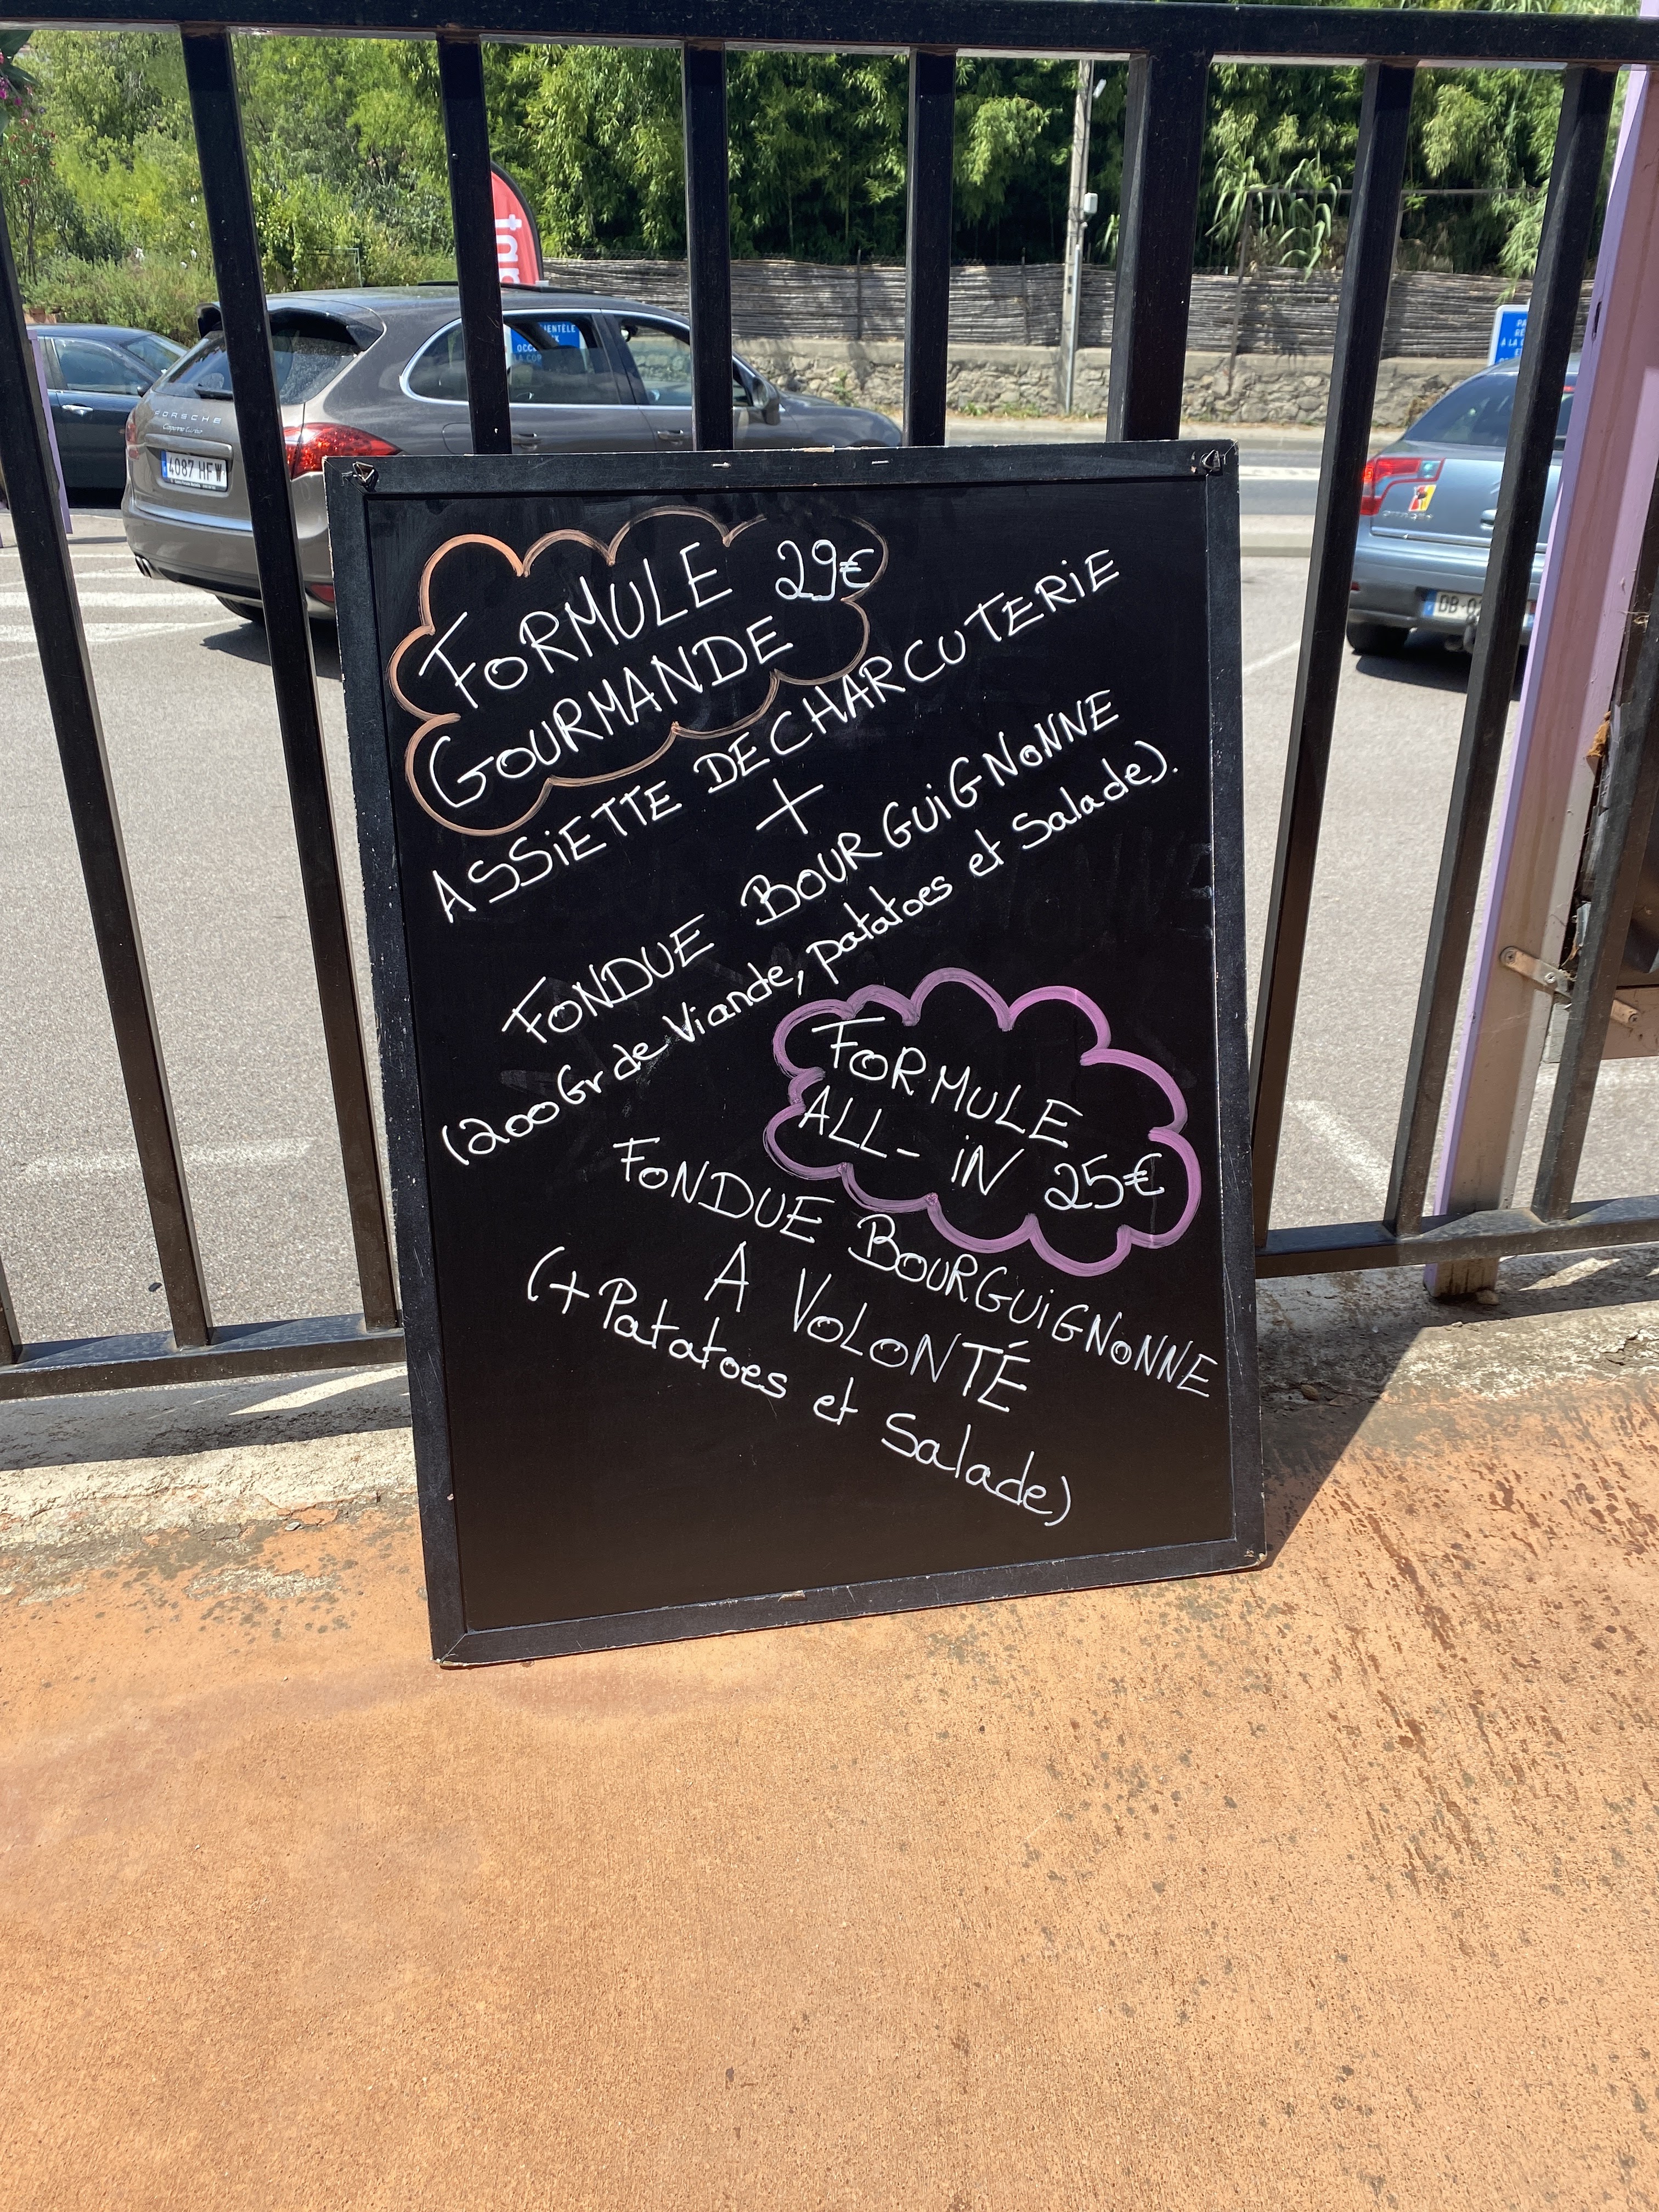 FORMULE 29€
GOURMANDE
ASSIETTE DE CHARCUTERIE
+
FONDUE BOURGUIGNONNE
(200Gr de Viande, patatoes et Salade).
FORMULE
ALL-iN 25€
FONDUE BOURGUIGNONNE
A VOLONTÉ
(+ Patatoes et Salade)
PORSCHE
Cayenne Turbo
4087 HFW